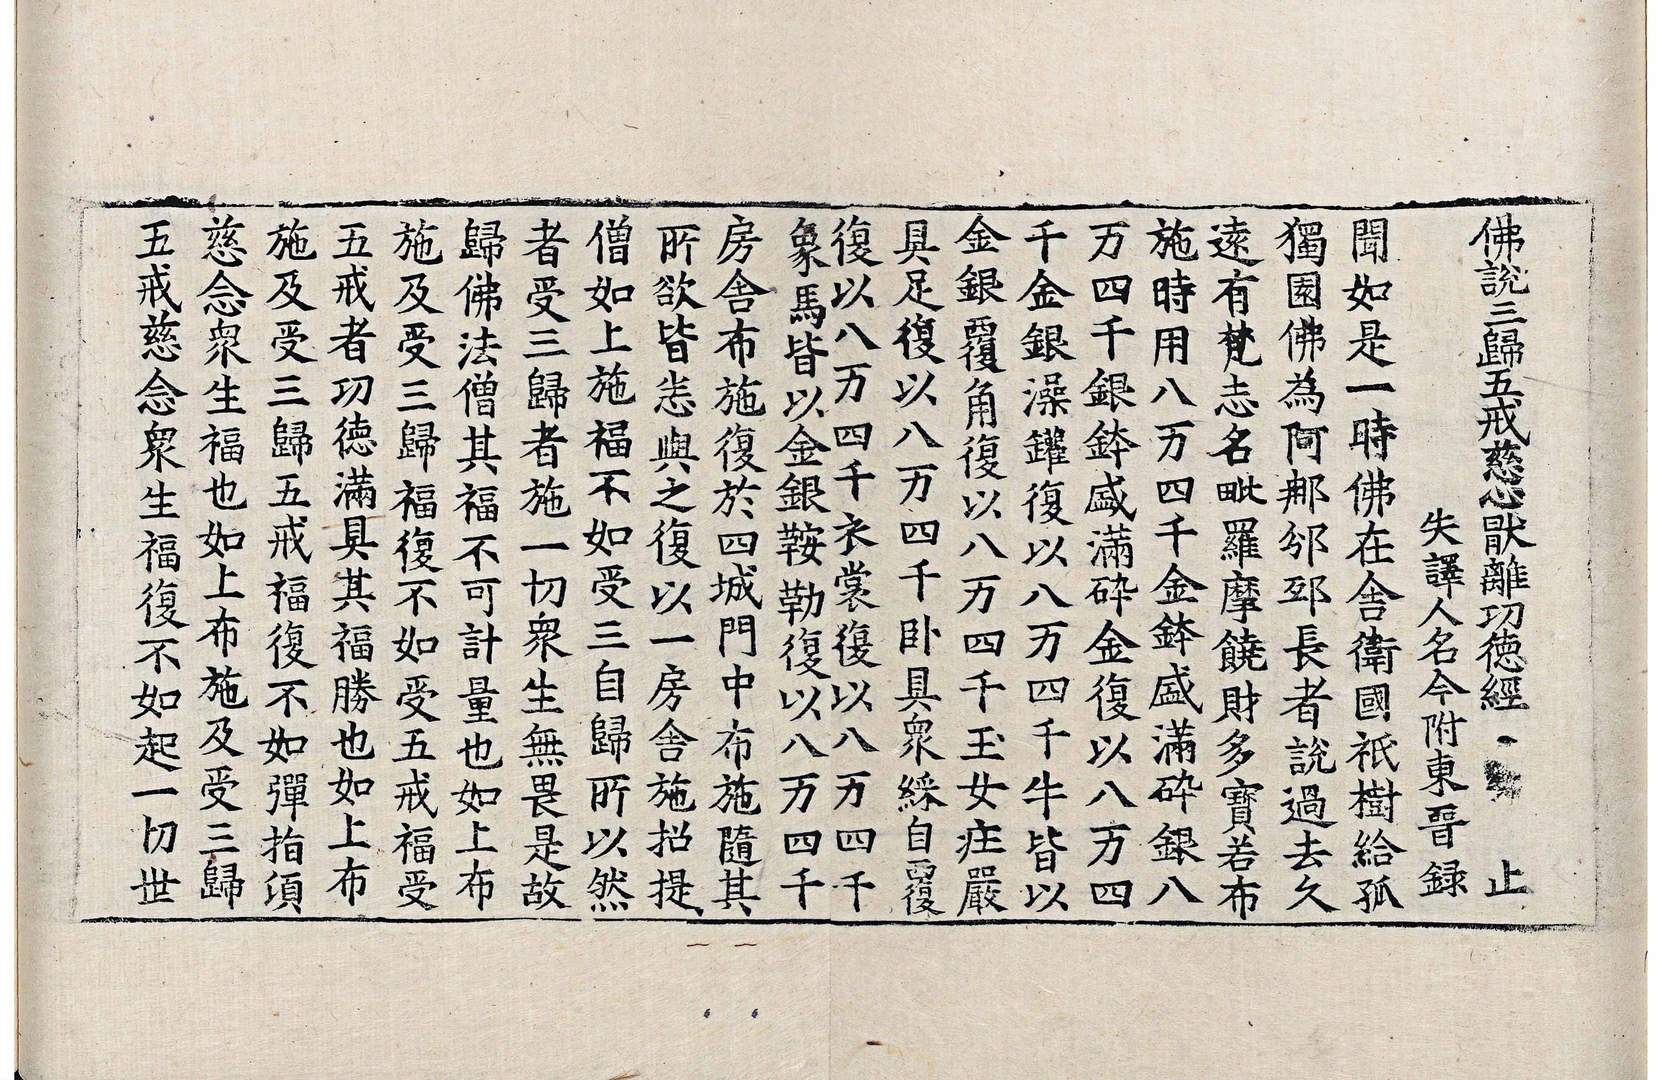 佛說三歸五戒慈心猒離功德經 止
失譯人名今附東晉録
聞如是一時佛在舍衛國祇樹給孤
獨園佛為阿那邠邸長者說過去久
遠有梵志名毗羅摩饒財多寶若布
施時用八万四千金鉢盛滿碎銀八
万四千銀鉢盛滿碎金復以八万四
千金銀澡鑵復以八万四千牛皆以
金銀覆角復以八万四千玉女庄嚴
具足復以八万四千卧具衆綵自覆
復以八万四千衣裳復以八万四千
象馬皆以金銀鞍勒復以八万四千
房舍布施復於四城門中布施隨其
所欲皆悉與之復以一房舍施招提
僧如上施福不如受三自歸所以然
者受三歸者施一切衆生無畏是故
歸佛法僧其福不可計量也如上布
施及受三歸福復不如受五戒福受
五戒者功德滿具其福勝也如上布
施及受三歸五戒福復不如彈指須
慈念衆生福也如上布施及受三歸
五戒慈念衆生福復不如起一切世